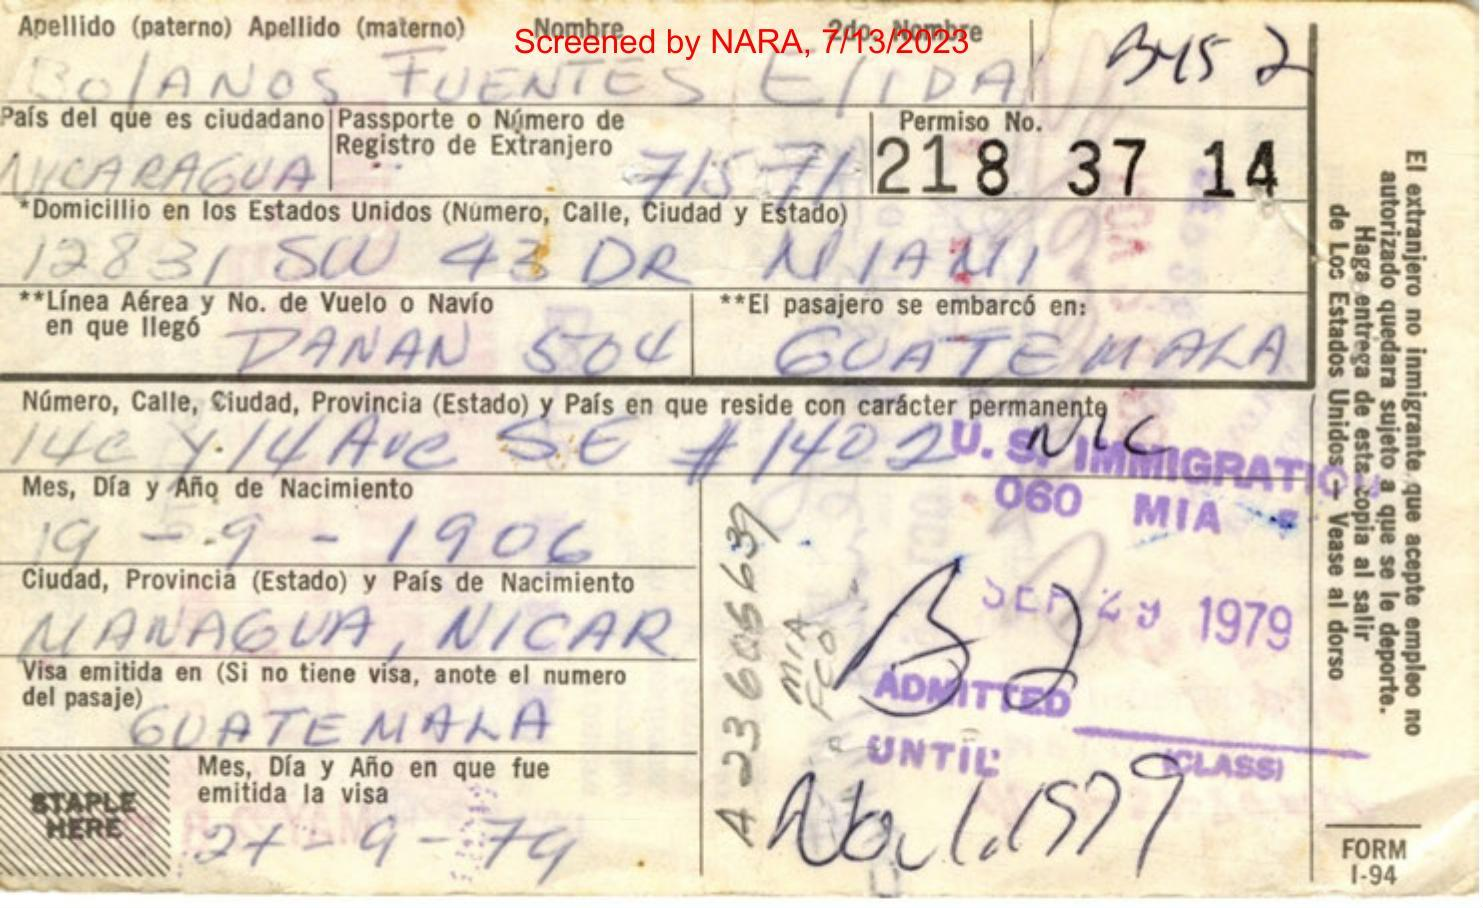 Apellido (paterno) Apellido (materno) Nombre 2do. Nombre
Screened by NARA, 7/13/2023
BOlANOS FUENTES ElIDA
País del que es ciudadano
NICARAGUA
Passporte o Número de
Registro de Extranjero
71571
Permiso No.
218 37 14
*Domicillio en los Estados Unidos (Número, Calle, Ciudad y Estado)
12831 SW 43 DR MIAMI
**Línea Aérea y No. de Vuelo o Navío
en que llegó
PANAM 504
**El pasajero se embarcó en:
GUATEMALA
Número, Calle, Ciudad, Provincia (Estado) y País en que reside con carácter permanente
14C y 14 Ave SE # 1402 NIC
Mes, Día y Año de Nacimiento
19 - 9 - 1906
Ciudad, Provincia (Estado) y País de Nacimiento
MANAGUA, NICAR
Visa emitida en (Si no tiene visa, anote el numero
del pasaje)
GUATEMALA
STAPLE
HERE
Mes, Día y Año en que fue
emitida la visa
27 - 9 - 79
A 23 605 639
MIA
U. S. IMMIGRATION
060 MIA
SEP 29 1979
B2
ADMITTED
(CLASS)
UNTIL
Nov. 1. 1979
El extranjero no inmigrante que acepte empleo no
autorizado quedara sujeto a que se le deporte.
Haga entrega de esta copia al salir
de Los Estados Unidos — Vease al dorso
FORM
I-94